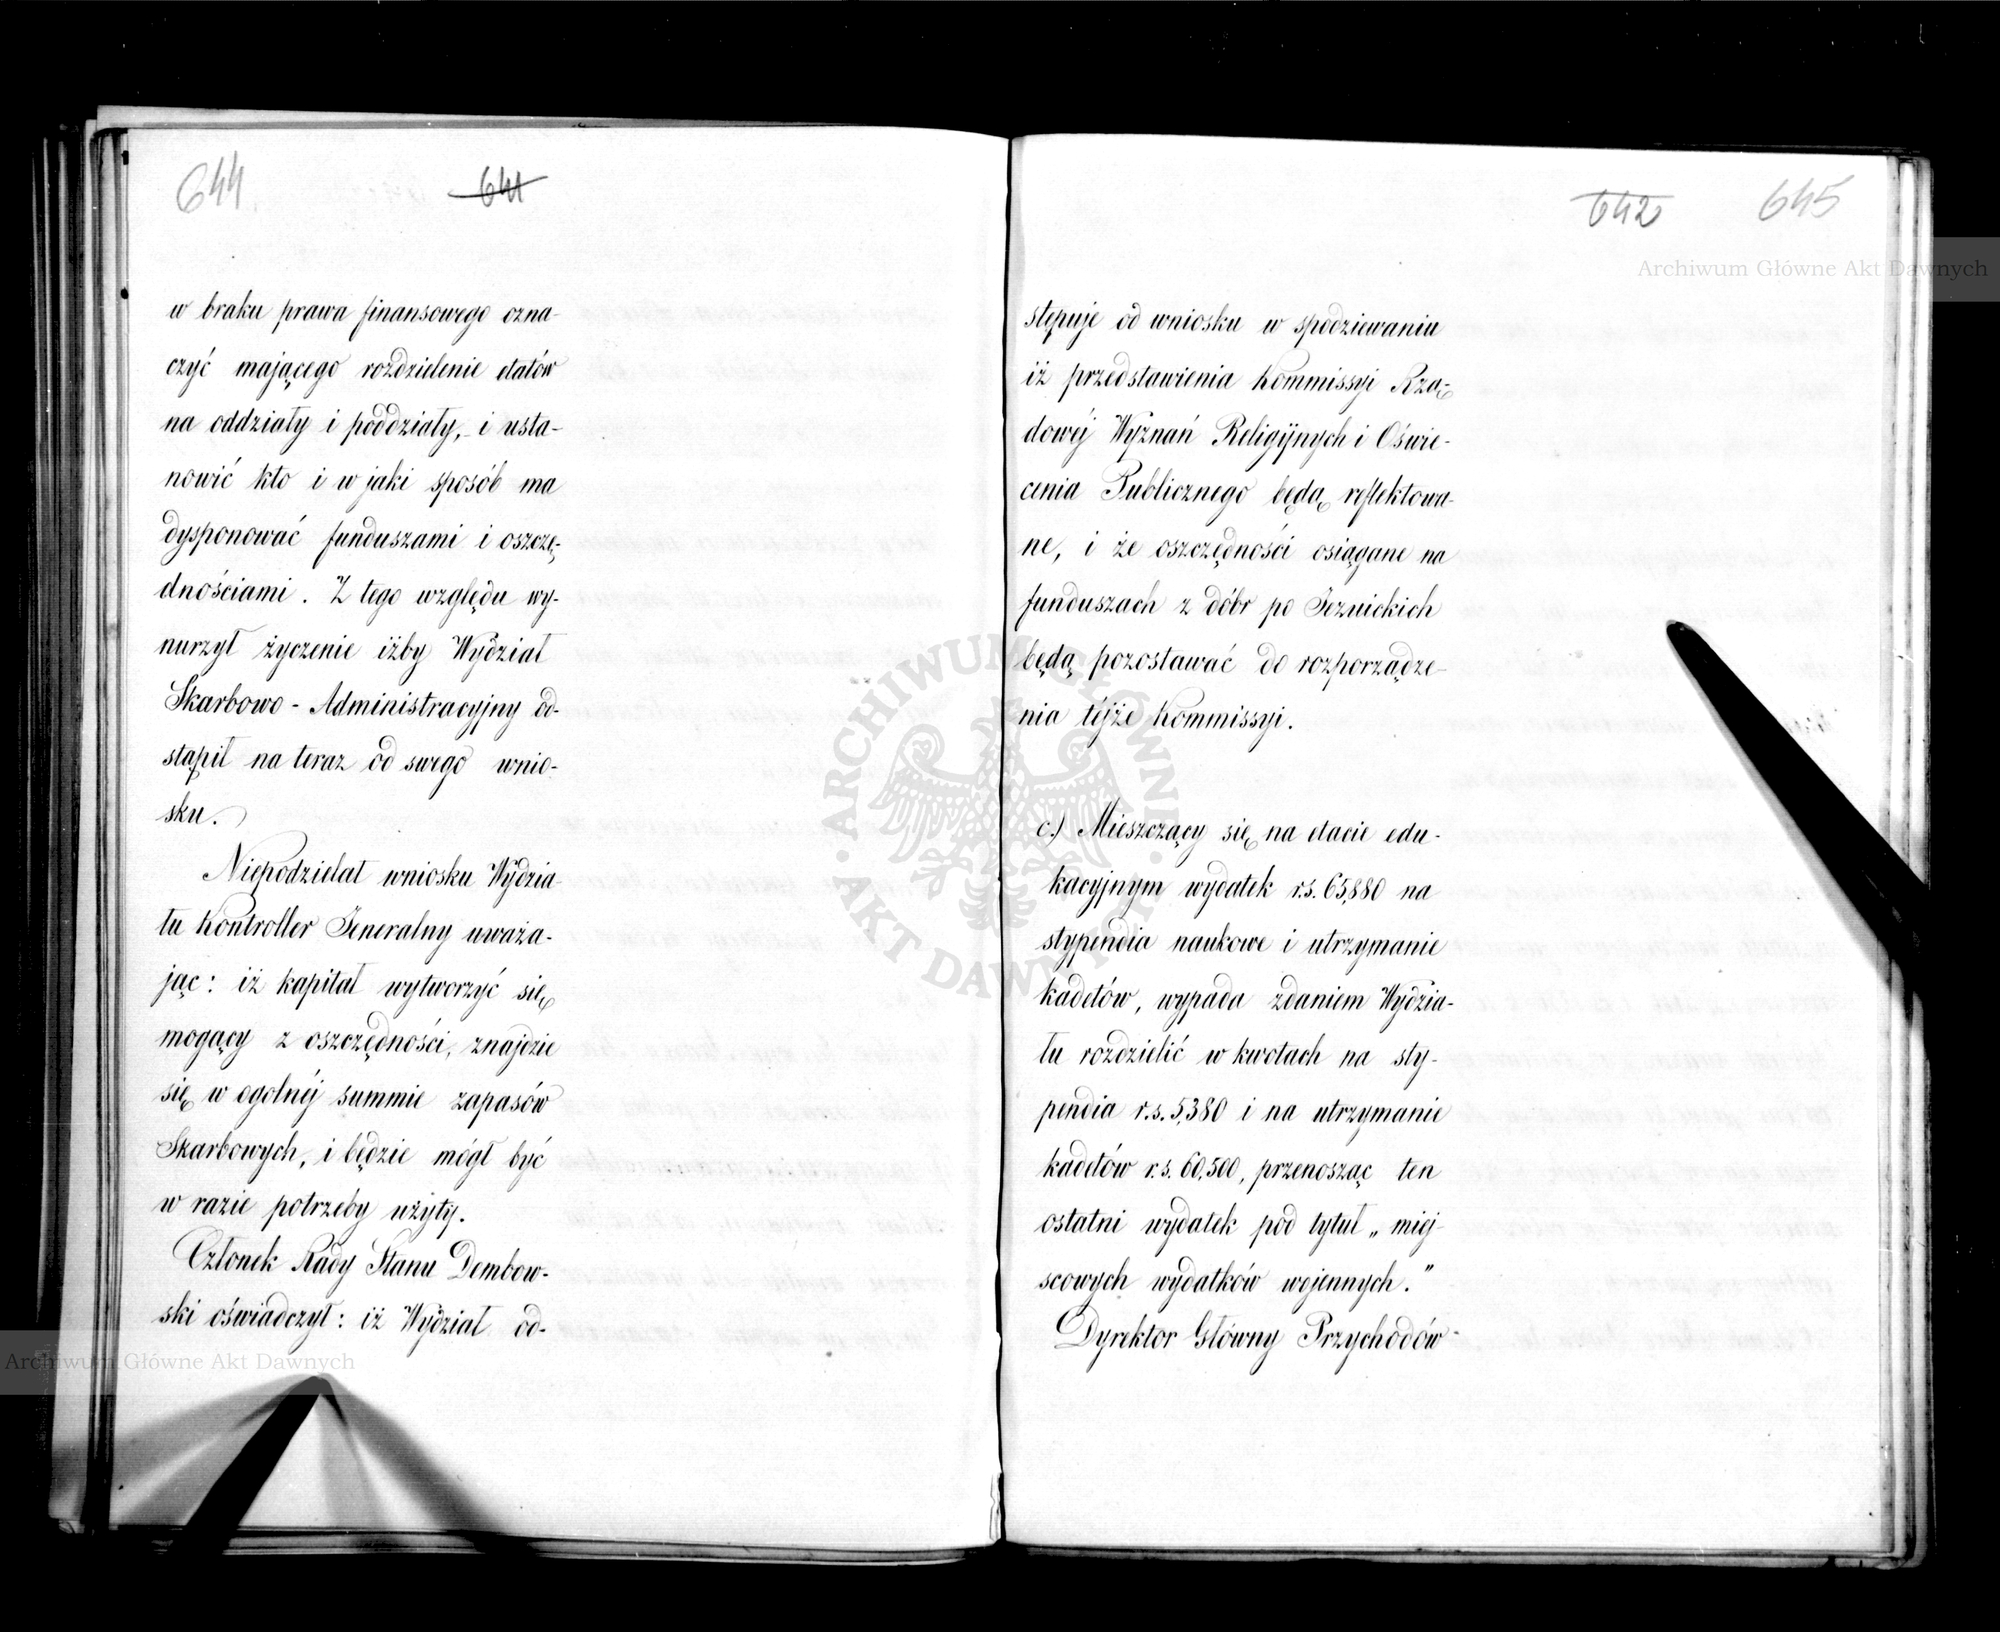 644 641
w braku prawa finansowego ozna-
czyć mającego rozdzielenie etatów
na oddziały i poddziały, i usta-
nowić kto i w jaki sposób ma
dysponować funduszami i oszczę-
dnościami. Z tego względu wy-
nurzył życzenie iżby Wydział
Skarbowo-Administracyjny od-
stąpił na teraz od swego wnio-
sku.
Niepodzielał wniosku Wydzia-
łu Kontroller Jeneralny uważa-
jąc: iż kapitał wytworzyć się
mogący z oszczędności, znajdzie
się w ogolnéj summie zapasów
Skarbowych, i będzie mógł być
w razie potrzeby użyty.
Członek Rady Stanu Dembow-
ski oświadczył: iż Wydział od-
642 645
stępuje od wniosku w spodziewaniu
iż przedstawienia Kommissyi Rzą-
dowéj Wyznań Religijnych i Oświe-
cenia Publicznego będą reflektowa-
ne, i że oszczędności osiągane na
funduszach z dóbr po Jezuickich
będą pozostawać do rozporządze-
nia téjże Kommissyi.
c.) Mieszczący się na etacie edu-
kacyjnym wydatek r.s. 65,880 na
stypendia naukowe i utrzymanie
kadetów, wypada zdaniem Wydzia-
łu rozdzielić w kwotach na sty-
pendia r.s. 5,380 i na utrzymanie
kadetów r.s. 60,500, przenosząc ten
ostatni wydatek pod tytuł „miej-
scowych wydatków wojennych."
Dyrektor Główny Przychodów
Archiwum Główne Akt Dawnych
Archiwum Główne Akt Dawnych
ARCHIWUM GŁÓWNE
AKT DAWNYCH